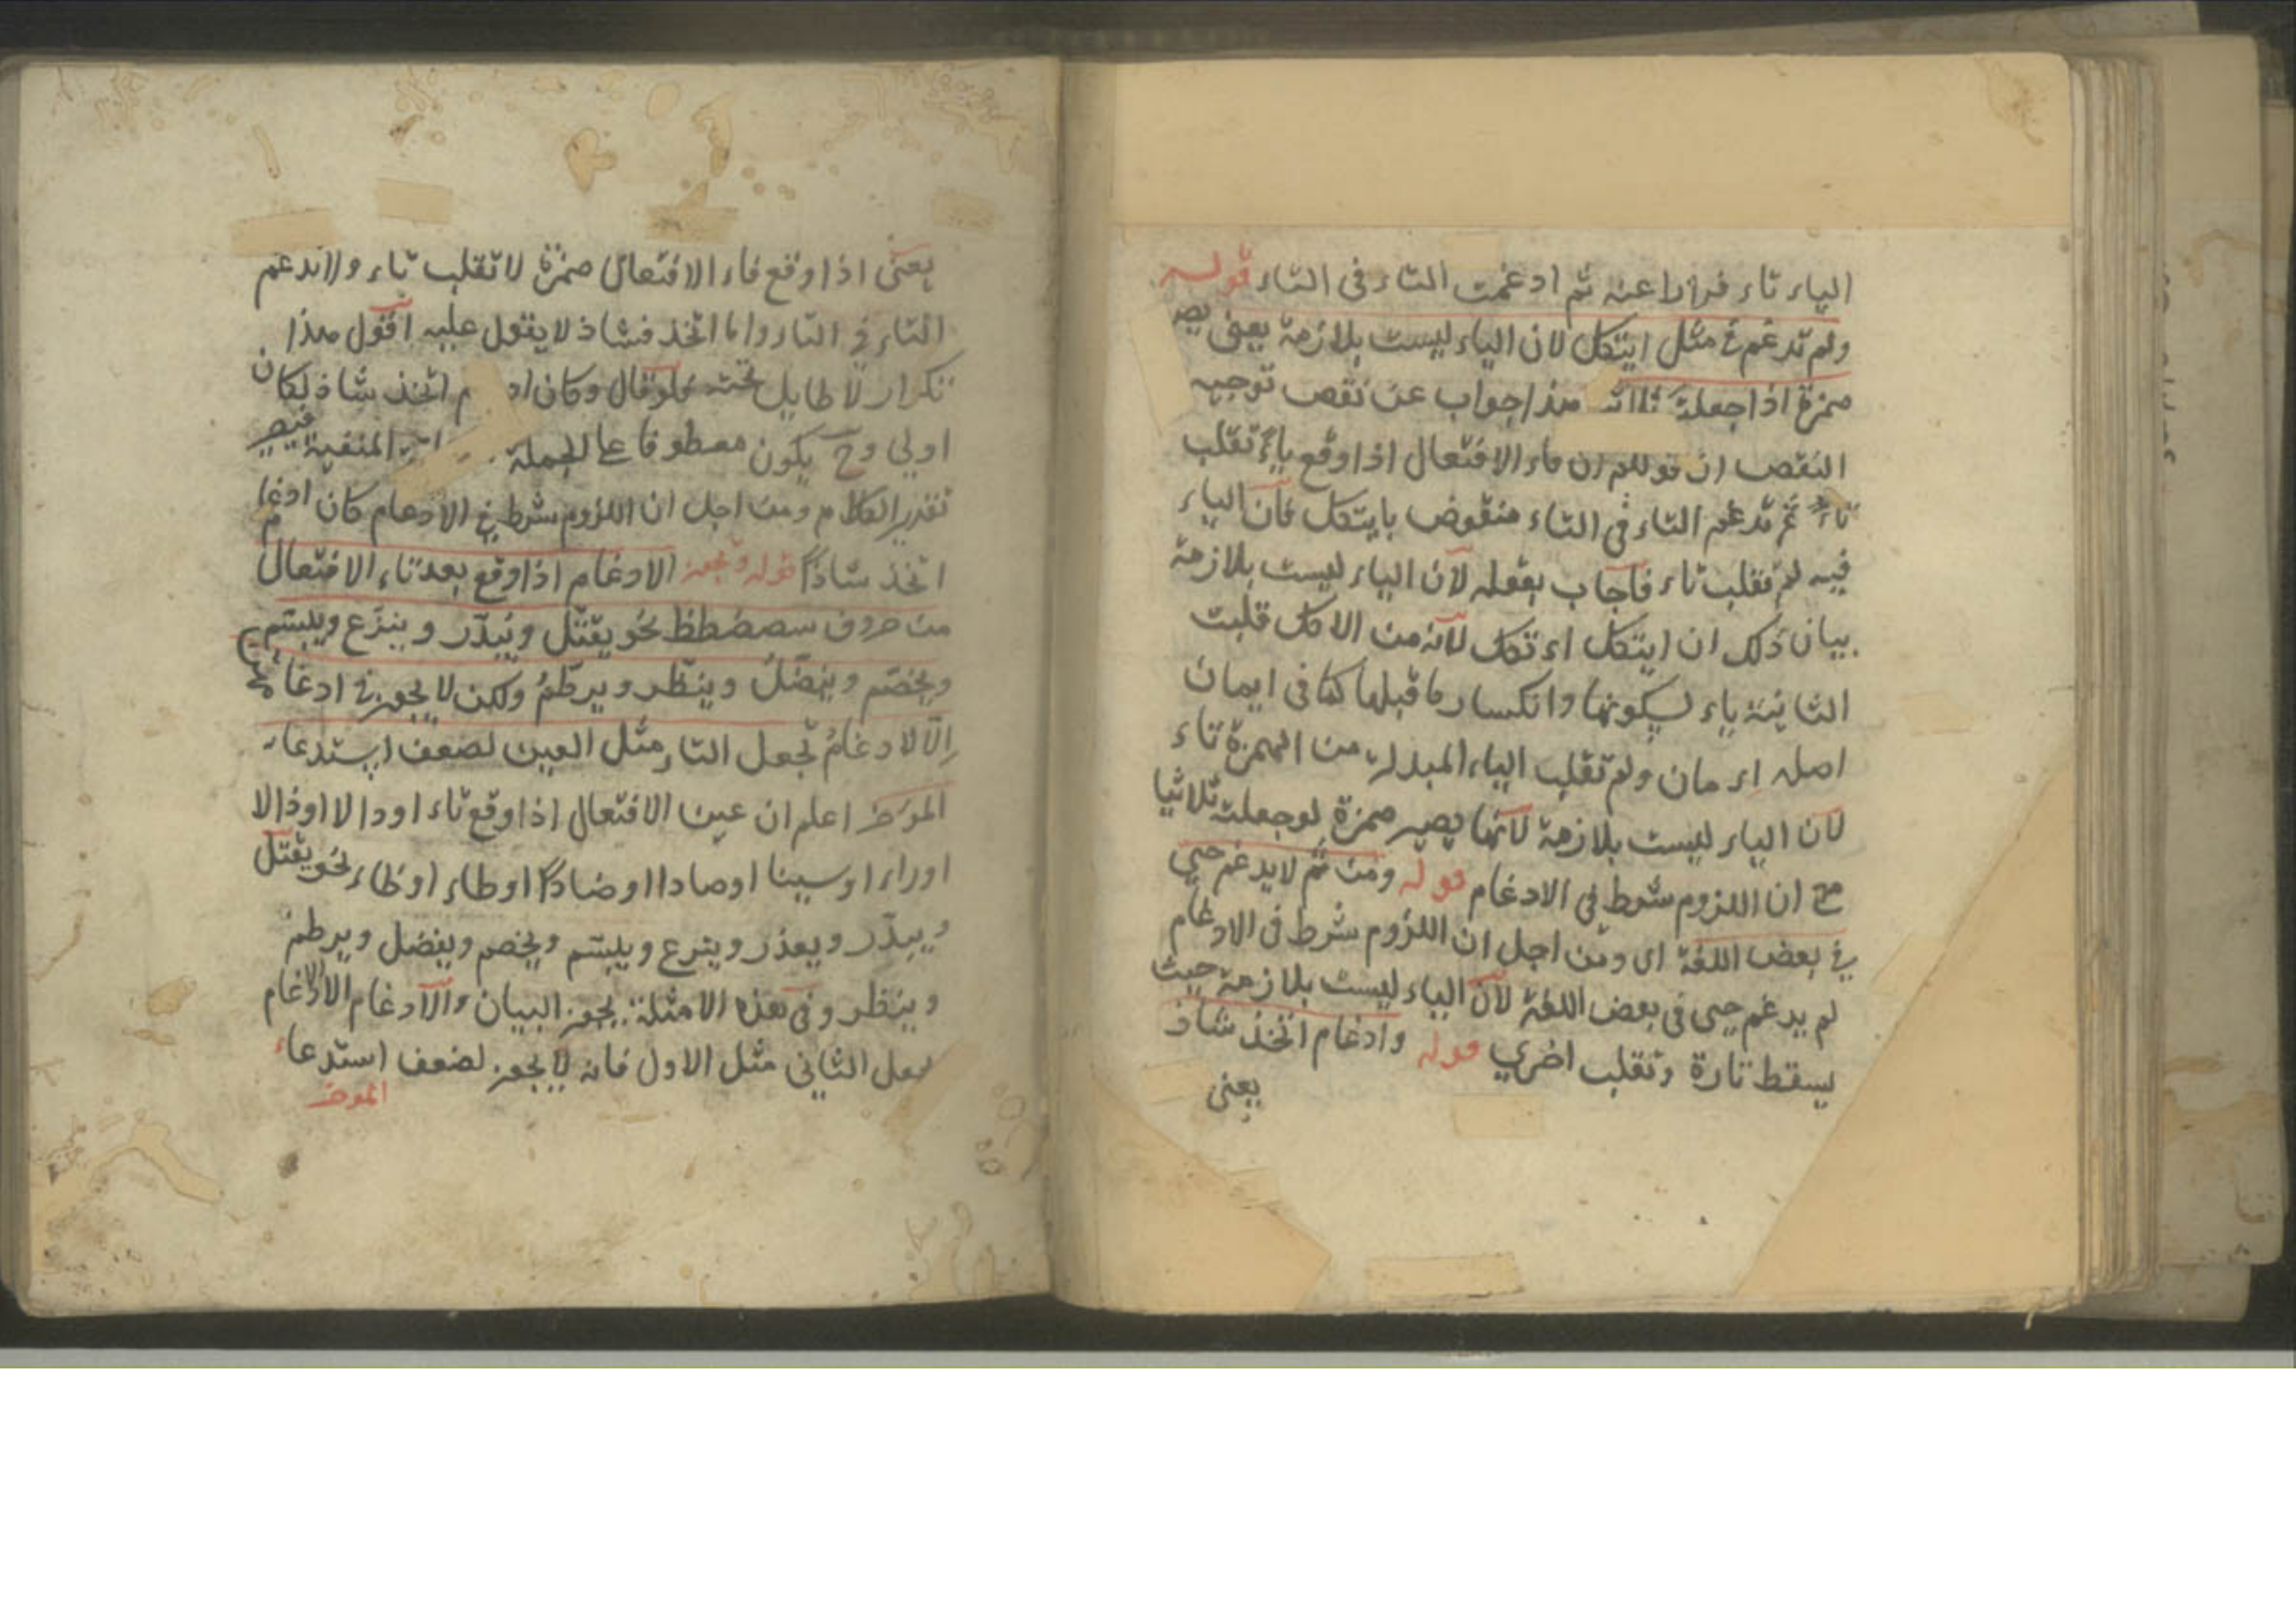 الياء تاء فرارا عنه ثم ادغمت التاء فى التاء قوله
ولم تدغم فى مثل ايتكل لان الياء ليست بلازمة يعنى يصير
همزة اذا جعلته ثلاثيا هذا جواب عن نقص توجيه
النقص ان قولكم ان فاء الافتعال اذا وقع ياء تقلب
تاء ثم تدغم التاء فى التاء منقوض بايتكل فان الياء
فيه لم تقلب تاء فاجاب بقوله لان الياء ليست بلازمة
بيان ذلك ان ايتكل اءتكل لانه من الاكل قلبت
الثانية ياء لسكونها وانكسار ما قبلها كما فى ايمان
اصله اءمان ولم تقلب الياء المبدلة من الهمزة تاء
لان الياء ليست بلازمة لانها يصير همزة لو جعلته ثلاثيا
مع ان اللزوم شرط فى الادغام قوله ومن ثم لا يدغم حيى
فى بعض اللغة اى ومن اجل ان اللزوم شرط فى الادغام
لم يدغم حيى فى بعض اللغة لان الياء ليست بلازمة حيث
يسقط تارة وتقلب اخرى قوله وادغام اتخذ شاذ
يعنى
يعنى اذا وقع فاء الافتعال همزة لا تقلب تاء ولا تدغم
التاء فى التاء واما اتخذ فشاذ لا يقول عليه اقول هذا
تكرار لا طايل تحته فلو قال وكان اد م اتخذ شاذ لكان
اولى وح يكون معطوفا على الجملة المنفية فيصير
تقدير الكلام ومن اجل ان اللزوم شرط فى الادغام كان ادغام
اتخذ شاذا قوله ويجوز الادغام اذا وقع بعد تاء الافتعال
من حروف سصضطظ نحو يقتل ويبدر وينزع ويبتسم
ويخصم وينضل وينظر ويرطم ولكن لا يجوز فى ادغامه
الا الادغام بجعل التاء مثل العين لضعف استدعاء
المؤخر اعلم ان عين الافتعال اذا وقع تاء او دالا او ذالا
او راء او سينا او صادا او ضادا او طاء او ظاء نحو يقتل
ويبدر ويعذر وينزع ويبتسم ويخصم ويفضل ويرطم
وينظر وفى هذه الامثلة يجوز البيان والادغام الا ادغام
بجعل الثانى مثل الاول فانه لا يجوز لضعف استدعاء
المؤخر